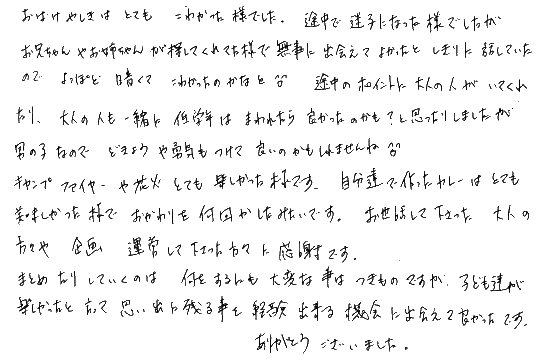 おばけやしきは とても こわかった様でした。 途中で迷子になった様でしたが
お兄ちゃんやお姉ちゃんが探してくれてた様で無事に出会えてよかったと しきりに話していた
ので よっぽど暗くて こわかったのかなと 途中のポイントに大人の人が いてくれ
たり、大人の人も一緒に低学年は まわれたら良かったのかも?と思ったりしましたが
男の子なので どきょうや勇気もつけて良いのかもしれませんね
キャンプファイヤーや花火とても楽しかった様です。 自分達で作ったカレーはとても
美味しかった様で おかわりを何回かしたみたいです。 お世話して下さった 大人の
方々や 企画 運営して下さった方々に感謝です。
まとめたりしていくのは 何をするにも大変な事はつきものですが、子ども達が
楽しかったと言って思い出に残る事を経験出来る機会に出会えて良かったです。
ありがとうございました。